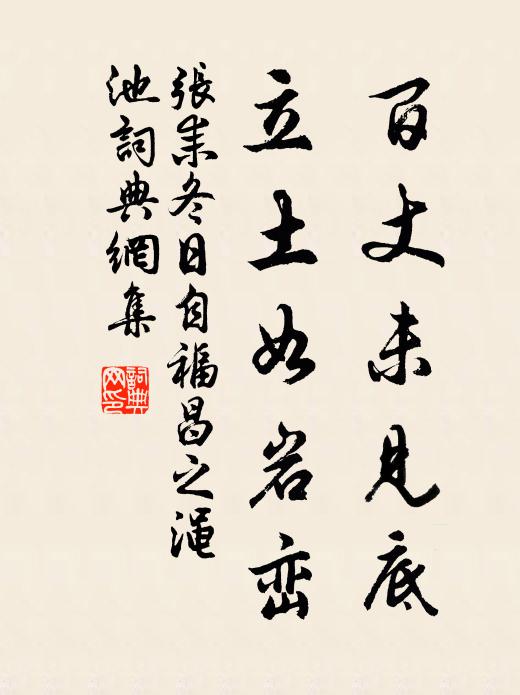 百丈未見底
立土如岩巒
張耒冬日自福昌之澠
池詞典網集
詞典網印